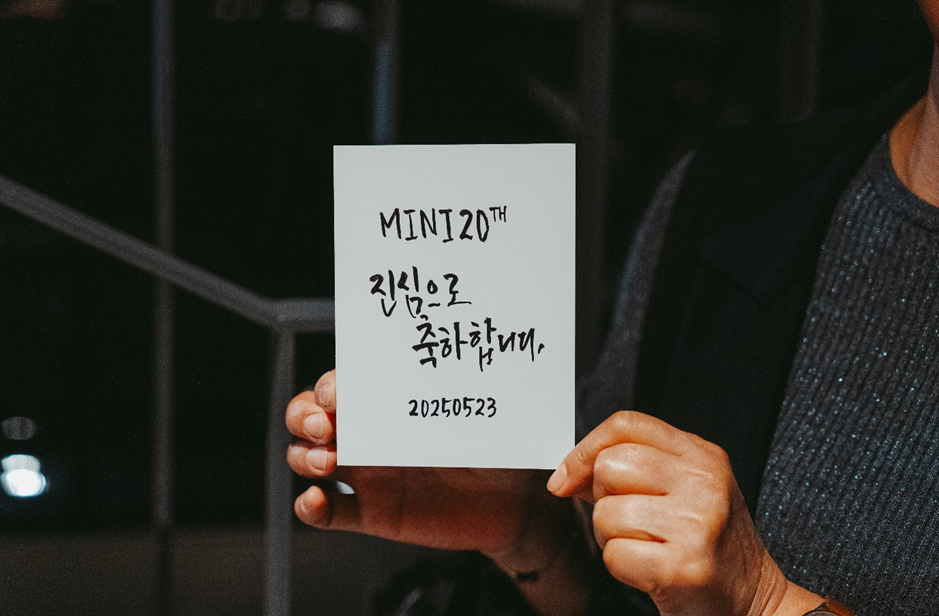 MINI 20TH
진심으로
축하합니다.
20250523